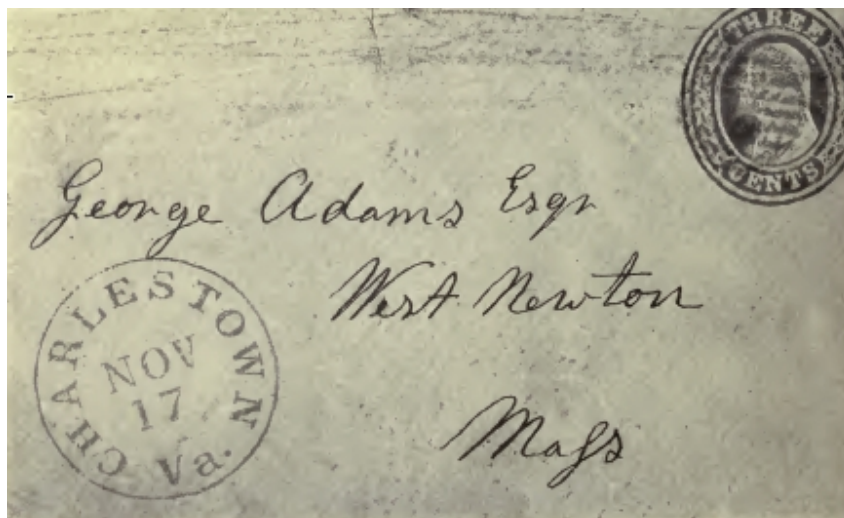 THREE
CENTS
George Adams Esqr
West Newton
Mass
CHARLESTOWN
NOV
17
Va.